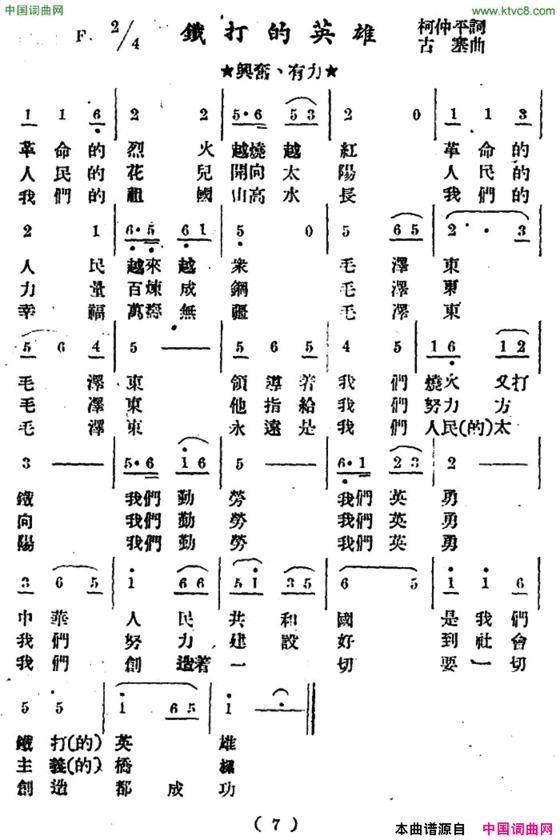 中国词曲网
www.ktvc8.com
F. 2/4 鐵打的英雄 柯仲平詞
古塞曲
★興奮、有力★
1 1 6 | 2 2 | 5·6 5 3 | 2 0 | 1 1 3
革命的 烈火 越燒越 紅 革命的
人民的 花兒 開向太 陽 人民的
我們的 祖國 山高水 長 我們的
2 1 | 6·5 6 1 | 5 0 | 5 6 5 | 2· 3
人民 越來越 衆 毛澤東
力量 百煉成 鋼 毛澤東
幸福 萬 無 疆 毛澤東
5 6 4 | 5 — | 5 6 5 | 4 5 | 1 6 1 2
毛澤東 領導着 我們 燒火又打
毛澤東 他指給 我們 努力方
毛澤東 永遠是 我們 人民(的)太
3 — | 5·6 1 6 | 5 — | 6·1 2 3 | 2 —
鐵 我們勤 勞 我們英 勇
向 我們勤 勞 我們英 勇
陽 我們勤 勞 我們英 勇
3 6 5 | 1 6 6 | 5 1 3 5 | 6 5 | 1 1 6
中華 人民 共和 國 是我們
我們 努力 建設 好 到社會
我們 創造着 一 切 要一切
5 5 | 1 6 5 | 1·
鐵打(的)英 雄
主義(的)橋
創造 都成 功
(7)
本曲谱源自 中国词曲网